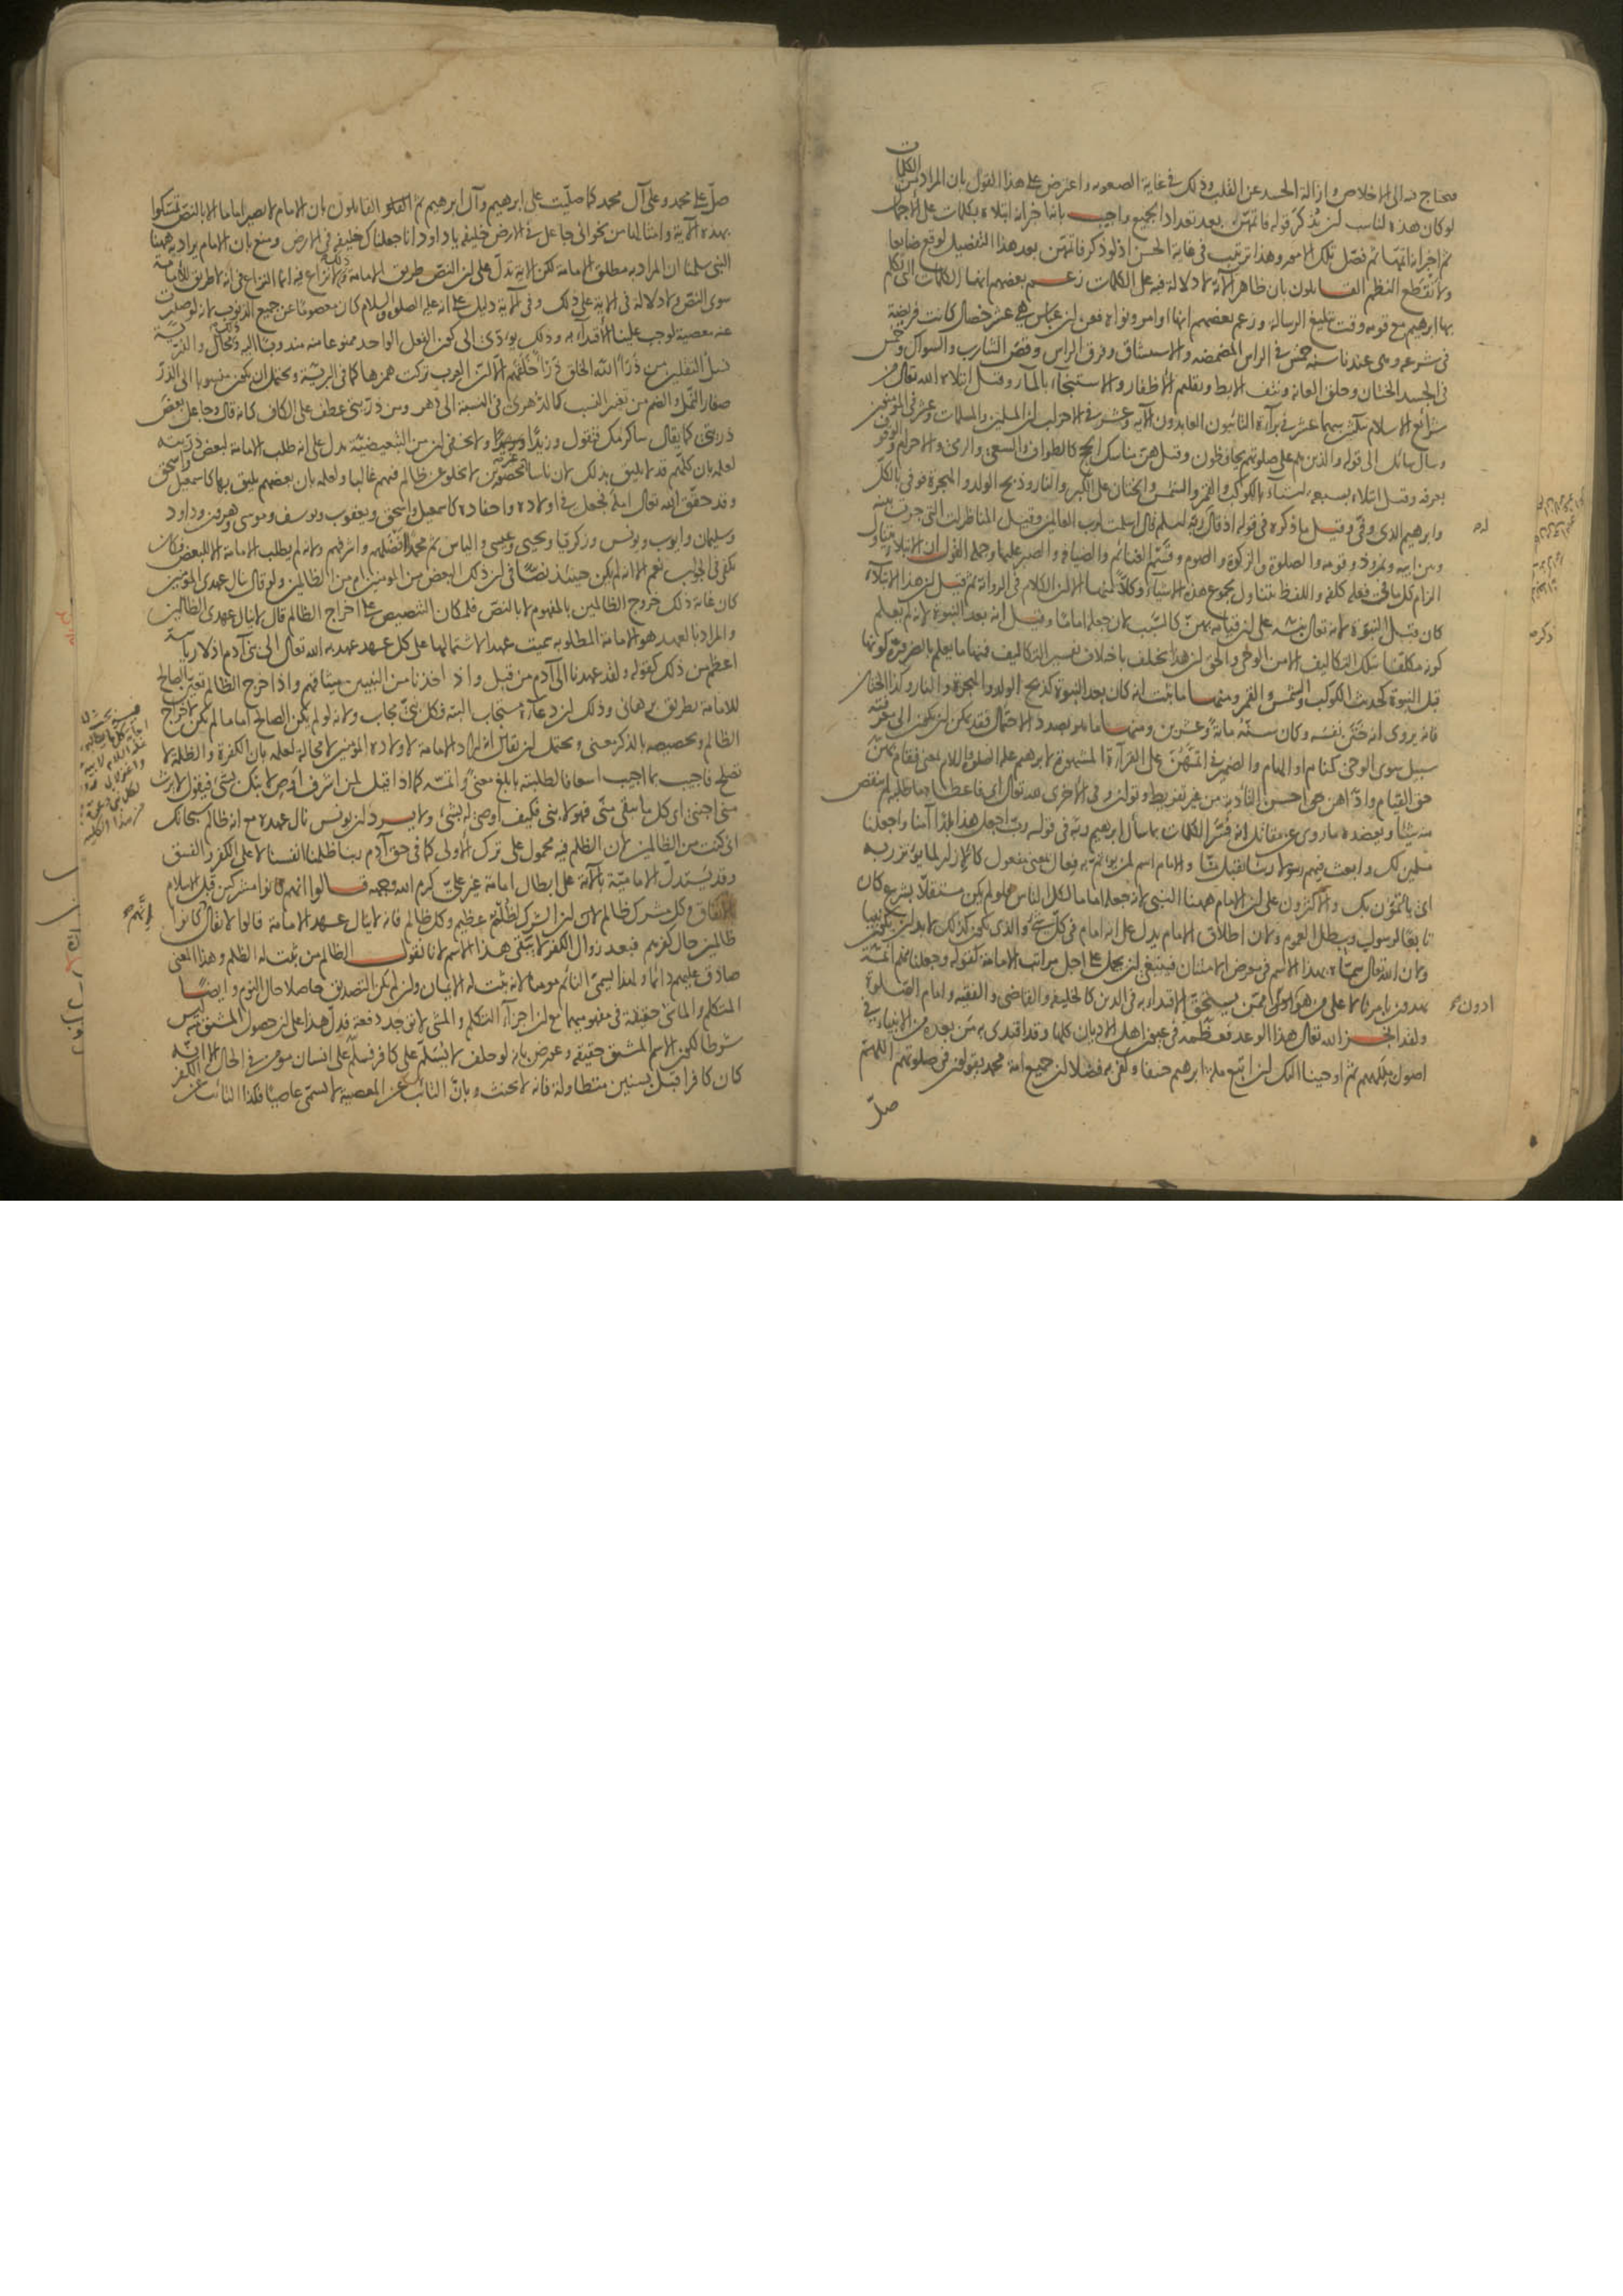 محتاج فيه الى الاخلاص وازالة الحسد عن القلب وذلك في غاية الصعوبة واعترض على هذا القول بان المراد من الكلمات
لو كان هذه لناسب ان يذكر قوله فاتمهن بعد تعداد الجميع واجيب بانه اخبر انه ابتلاه بكلمات على الاجمال
ثم اخبر انه اتمها ثم فصل تلك الامور وهذا ترتيب في غاية الحسن اذ لو ذكر فاتمهن بعد هذا التفصيل لوقع ضايعا
ولانقطع النظم القائلون بان ظاهر الآية لا دلالة فيه على الكلمات زعم بعضهم انها الكلمات التي تكلم
بها ابرهيم مع قومه وقت تبليغ الرسالة وزعم بعضهم انها اوامر ونواه فعن ابن عباس هي عشر خصال كانت فريضة
في شرعه وهي عندنا سنة خمس في الراس المضمضه والاستنشاق وفرق الراس وقص الشارب والسواك وخمس
في الجسد الختان وحلق العانة ونتف الابط وتقليم الأظفار والاستنجاء بالماء وقيل ابتلاه الله تعالى من
شرائع الاسلام بثلثين سهما عشر في براءة التائبون العابدون الآية وعشر في الاحزاب ان المسلمين والمسلمات وعشر في المؤمنين
وسأل سائل الى قوله والذين هم على صلوتهم يحافظون وقيل هن مناسك الحج كالطواف والسعى والرمى والاحرام والوقوف
بعرفه وقيل ابتلاه بسبعة اشياء بالكوكب والقمر والشمس والختان على الكبر والنار وذبح الولد والهجرة فوفى بالكل
وابرهيم الذي وفى وقيل ما ذكره في قوله اذ قال له ربه اسلم قال اسلمت لرب العالمين وقيل المناظرات التي جرت بينه
وبين ابيه ونمرود وقومه والصلوة والزكوة والصوم وقسم الغنائم والضيافة والصبر عليها وجملة القول ان الابتلاء يتناول
الزام كل ما في فعله كلفة واللفظ يتناول مجموع هذه الاشياء وكلا منها الا ان الكلام في الرواية ثم قيل ان هذا الابتلاء
كان قبل النبوة لانه تعالى نبه على ان قيامه بهن كالسبب لان جعله اماما وقيل انه بعد النبوة لانه لم يعلم
كونه مكلفا بتلك التكاليف الا من الوحي والحق ان هذا يختلف باختلاف تفسير التكاليف فمنها ما يعلم بالضرورة كونها
قبل النبوة كحديث الكوكب والشمس والقمر ومنها ما ثبت انه كان بعد النبوة كذبح الولد والهجرة والنار وكذا الختان
فانه يروى انه ختن نفسه وكان سنه مائة وعشرين ومنها ما هو بصدد الاحتمال فقد يمكن ان يكون الى معرفته
سبيل سوى الوحي كمنام او الهام والضمير في اتمهن على القراءة المشهورة لابرهيم عليه الصلوة والسلام بمعنى فقام بهن
حق القيام واداهن حق احسن التأدية من غير تفريط وتوان وفي الأخرى لله تعالى اي فاعطاه ما طلبه لم ينقص
منه شيئا ويعضده ما روي عن مقاتل انه فسر الكلمات بما سأل ابرهيم ربه في قوله رب اجعل هذا بلدا آمنا واجعلنا
مسلمين لك وابعث فيهم رسولا ربنا تقبل منا والامام اسم لمن يؤتم به فعال بمعنى مفعول كالإزار لما يؤتزر به
اي ياتمون بك والاكثرون على ان الامام ههنا النبي لانه جعله اماما لكل الناس فلو لم يكن مستقلا بشرع كان
تابعا لرسول ويبطل العموم ولان اطلاق الامام يدل على انه امام في كل شيء والذي يكون كذلك لا بد ان يكون نبيا
ولان الله تعالى سماه بهذا الاسم في معرض الامتنان فينبغي ان يحمل على اجل مراتب الامامة كقوله وجعلنا منهم ائمة
يهدون بامرنا لا على من هو ادون ممن يستحق الاقتداء به في الدين كالخليفة والقاضي والفقيه وامام الصلوة
ولقد انجز الله تعالى هذا الوعد فعظمه في عيون اهل الاديان كلها وقد اقتدى به من بعده من الانبياء في
اصول مللهم ثم اوحينا اليك ان اتبع ملة ابرهيم حنيفا وكفى به فضلا ان جميع امة محمد يقولون في صلوتهم اللهم
صل
ادون
صل على محمد وعلى آل محمد كما صليت على ابرهيم وآل ابرهيم ثم القائلون بان الامام لا يصير اماما الا بالنص تمسكوا
بهذه الآية وامثالها من نحو اني جاعل في الارض خليفة يا داود انا جعلناك خليفة في الارض ومنع بان الامام يراد به ههنا
النبي سلمنا ان المراد به مطلق الامامة لكن الآية تدل على ان النص طريق الامامة وذلك لا نزاع فيه انما النزاع في انه لا طريق للامامة
سوى النص ولا دلالة في الآية على ذلك وفي الآية دليل على انه عليه الصلوة والسلام كان معصوما عن جميع الذنوب لانه لو صدرت
عنه معصية لوجب علينا الاقتداء به وذلك يؤدي الى كون الفعل الواحد ممنوعا منه مندوبا اليه وذلك محال والذرية
نسل الثقلين من ذرأ الله الخلق ذرأ خلقهم الا ان العرب تركت همزها كما في البرية ويحتمل ان يكون منسوبا الى الذر
صغار النمل والضم من تغيير النسب كالدهري في النسبة الى الدهر ومن ذريتي عطف على الكاف كانه قال وجاعل بعض
ذريتي كما يقال ساكرمك فتقول وزيدا ولا يخفى ان من التبعيضية يدل على انه طلب الامامة لبعض ذريته
لعلمه بان كلهم قد لا يليق بذلك لان ناسا غير محصورين لا يخلو عن ظالم فيهم غالبا ولعلمه بان بعضهم يليق بها كاسمعيل واسحق
وقد حقق الله تعالى امله فجعل في اولاده واحفاده كاسمعيل واسحق ويعقوب ويوسف وموسى وهرون وداود
وسليمان وايوب ويونس وزكريا ويحيى وعيسى والياس ثم محمد افضلهم واشرفهم ولانه لم يطلب الامامة الا للبعض فكان
يكفي في الجواب نعم الا انه لم يكن حينئذ نصا في ان ذلك البعض من المومنين ام من الظالمين ولو قال ينال عهدي المؤمنين
كان غاية ذلك خروج الظالمين بالمفهوم لا بالنص فلمكان التنصيص على اخراج الظالم قال لا ينال عهدي الظالمين
والمراد بالعهد هو الامامة المطلوبة سميت عهدا لاشتمالها على كل عهد عهد به الله تعالى الى بني آدم اذ لا رياسة
اعظم من ذلك كقوله ولقد عهدنا الى آدم من قبل واذ اخذنا من النبيين ميثاقهم واذا خرج الظالم تعين الصالح
للامامة بطريق برهاني وذلك ان دعاءه مستجاب البتة فكل نبي مجاب ولانه لو لم يكن الصالح اماما لم يكن لاخراج
الظالم وتخصيصه بالذكر معنى ويحتمل ان يقال انه اراد الامامة لاولاده المؤمنين لا محالة لعلمه بان الكفرة والظلمة لا
تصلح فاجيب بما اجيب اسعافا لطلبته بابلغ معنى واتمه كما اذا قيل لمن اشرف أوص لابنك بشئ فيقول لا يرث
مني اجنبي اي كل ما يبقى مني فهو لابني فكيف اوصي له بشئ ولا يرد ان يونس نال عهده مع انه ظالم سبحانك
اني كنت من الظالمين لان الظلم فيه محمول على ترك الاولى كما في حق آدم ربنا ظلمنا انفسنا لا على الكفر والفسق
وقد يستدل الامامية بالآية على ابطال امامة غير علي كرم الله وجهه قالوا انهم كانوا مشركين قبل الاسلام
بالاتفاق وكل مشرك ظالم لان الشرك لظلم عظيم وكل ظالم فانه لا ينال عهد الامامة قالوا لا يقال كانوا
ظالمين حال كفرهم فبعد زوال الكفر لا يبقى هذا الاسم لانا نقول الظالم من ثبت له الظلم وهذا المعنى
صادق عليهم دائما ولهذا يسمى النائم مومنا لانه ثبت له الايمان وان لم يكن التصديق حاصلا حال النوم وايضا
المتكلم والماشي حقيقة في مفهوميهما مع ان اجزاء التكلم والمشي لا توجد دفعة فدل هذا على ان حصول المشتق منه ليس
شرطا لكون الاسم المشتق حقيقة وعورض بانه لو حلف لا يسلم على كافر فسلم على انسان مومن في الحال الا انه
كان كافرا قبل بسنين متطاولة فانه لا يحنث وبان التائب عن الكفر لا يسمى كافرا والتائب عن المعصية لا يسمى عاصيا فكذا التائب عن